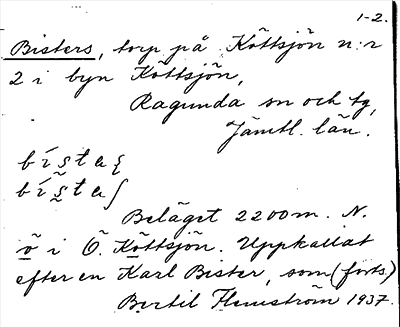 1-2.
Bisters, torp på Köttsjön n:r
2 i byn Köttsjön,
Ragunda sn och tg,
Jämtl. län.
Beläget 2200 m. N.
ö i Ö. Köttsjön. Uppkallat
efter en Karl Bister, som (forts.)
Bertil Flemström 1937.